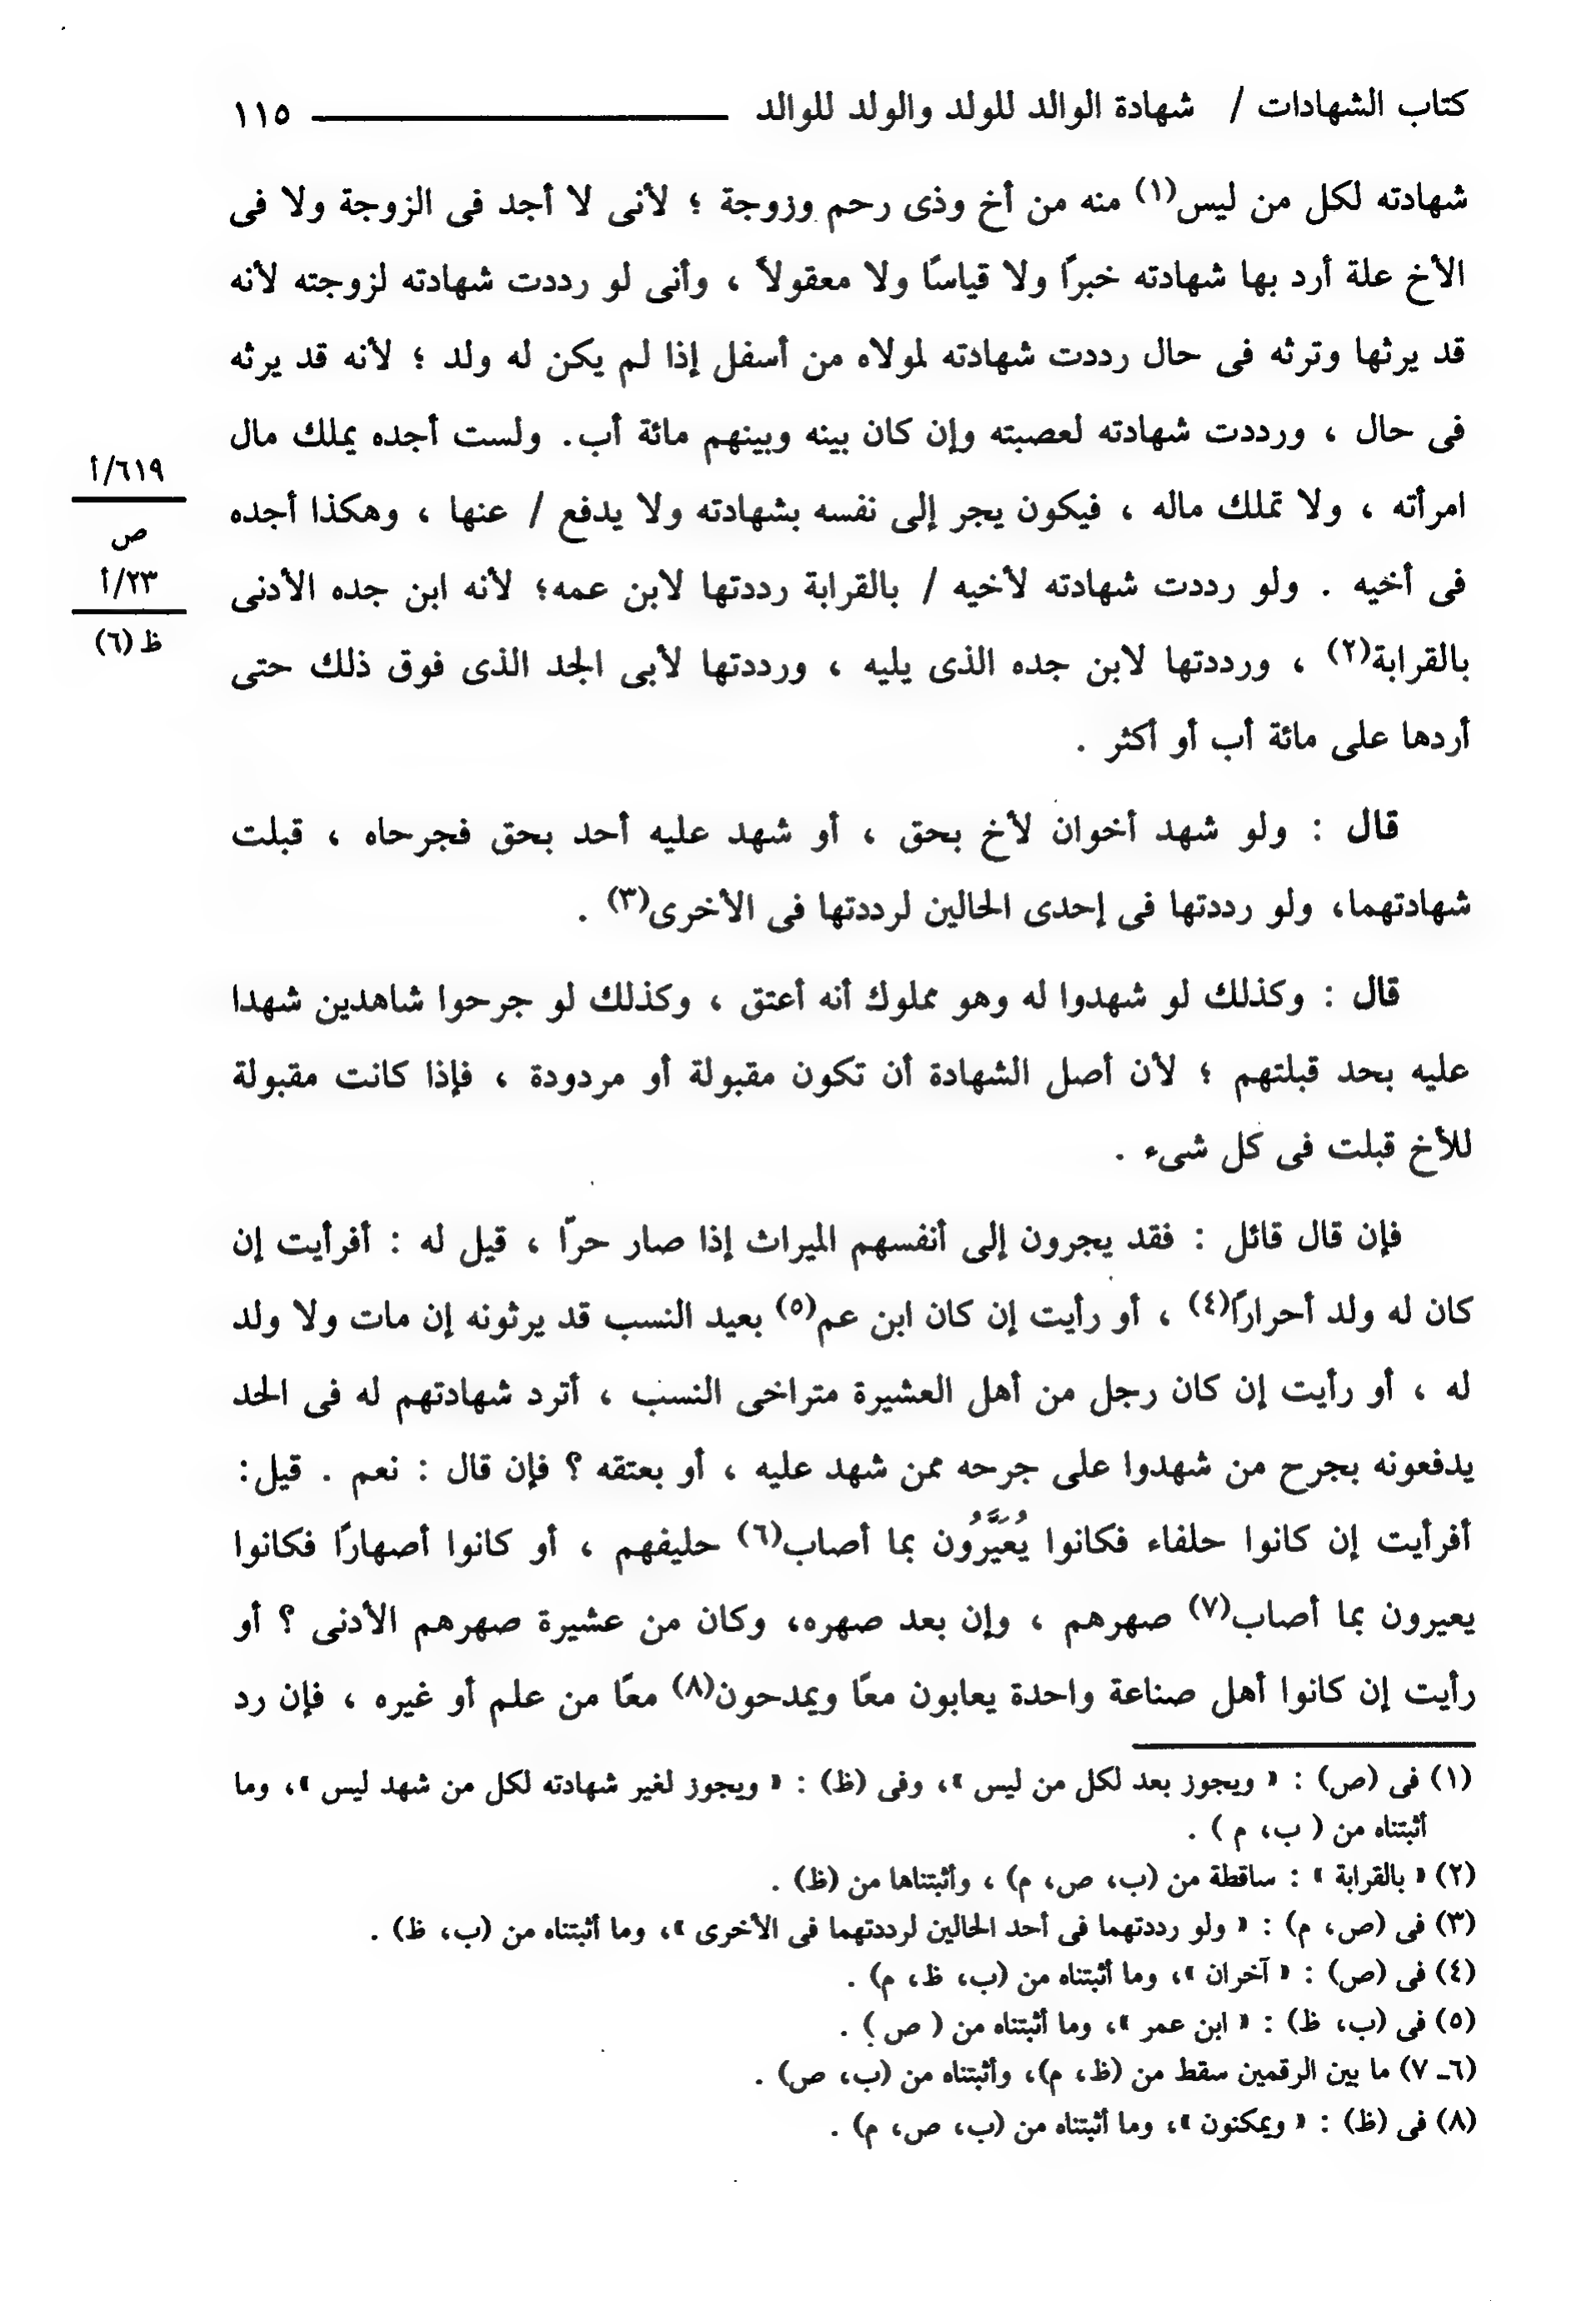 كتاب الشهادات / شهادة الوالد للولد والولد للوالد ١١٥
شهادته لكل من ليس(١) منه من أخ وذى رحم وزوجة ؛ لأنى لا أجد فى الزوجة ولا فى
الأخ علة أرد بها شهادته خبرًا ولا قياسًا ولا معقولاً ، وأنى لو رددت شهادته لزوجته لأنه
قد يرثها وترثه فى حال رددت شهادته لمولاه من أسفل إذا لم يكن له ولد ؛ لأنه قد يرثه
فى حال ، ورددت شهادته لعصبته وإن كان بينه وبينهم مائة أب. ولست أجده يملك مال
امرأته ، ولا تملك ماله ، فيكون يجر إلى نفسه بشهادته ولا يدفع / عنها ، وهكذا أجده
فى أخيه . ولو رددت شهادته لأخيه / بالقرابة رددتها لابن عمه؛ لأنه ابن جده الأدنى
بالقرابة(٢) ، ورددتها لابن جده الذى يليه ، ورددتها لأبى الجد الذى فوق ذلك حتى
أردها على مائة أب أو أكثر .
٦١٩/أ
ص
٢٣/أ
ظ (٦)
قال : ولو شهد أخوان لأخ بحق ، أو شهد عليه أحد بحق فجرحاه ، قبلت
شهادتهما، ولو رددتها فى إحدى الحالين لرددتها فى الأخرى(٣) .
قال : وكذلك لو شهدوا له وهو مملوك أنه أعتق ، وكذلك لو جرحوا شاهدين شهدا
عليه بحد قبلتهم ؛ لأن أصل الشهادة أن تكون مقبولة أو مردودة ، فإذا كانت مقبولة
للأخ قبلت فى كل شىء .
فإن قال قائل : فقد يجرون إلى أنفسهم الميراث إذا صار حرّا ، قيل له : أفرأيت إن
كان له ولد أحرارًا(٤) ، أو رأيت إن كان ابن عم(٥) بعيد النسب قد يرثونه إن مات ولا ولد
له ، أو رأيت إن كان رجل من أهل العشيرة متراخى النسب ، أترد شهادتهم له فى الحد
يدفعونه بجرح من شهدوا على جرحه ممن شهد عليه ، أو بعتقه ؟ فإن قال : نعم . قيل:
أفرأيت إن كانوا حلفاء فكانوا يُعَيَّرُون بما أصاب(٦) حليفهم ، أو كانوا أصهارًا فكانوا
يعيرون بما أصاب(٧) صهرهم ، وإن بعد صهره، وكان من عشيرة صهرهم الأدنى ؟ أو
رأيت إن كانوا أهل صناعة واحدة يعابون معًا ويمدحون(٨) معًا من علم أو غيره ، فإن رد
(١) فى (ص) : « ويجوز بعد لكل من ليس »، وفى (ظ) : « ويجوز لغير شهادته لكل من شهد ليس »، وما
أثبتناه من ( ب، م ) .
(٢) « بالقرابة » : ساقطة من (ب، ص، م) ، وأثبتناها من (ظ) .
(٣) فى (ص، م) : « ولو رددتهما فى أحد الحالين لرددتهما فى الأخرى »، وما أثبتناه من (ب، ظ) .
(٤) فى (ص) : « آخران »، وما أثبتناه من (ب، ظ، م) .
(٥) فى (ب، ظ) : « ابن عمر »، وما أثبتناه من ( ص ) .
(٦ـ ٧) ما بين الرقمين سقط من (ظ، م)، وأثبتناه من (ب، ص) .
(٨) فى (ظ) : « ويمكنون »، وما أثبتناه من (ب، ص، م) .